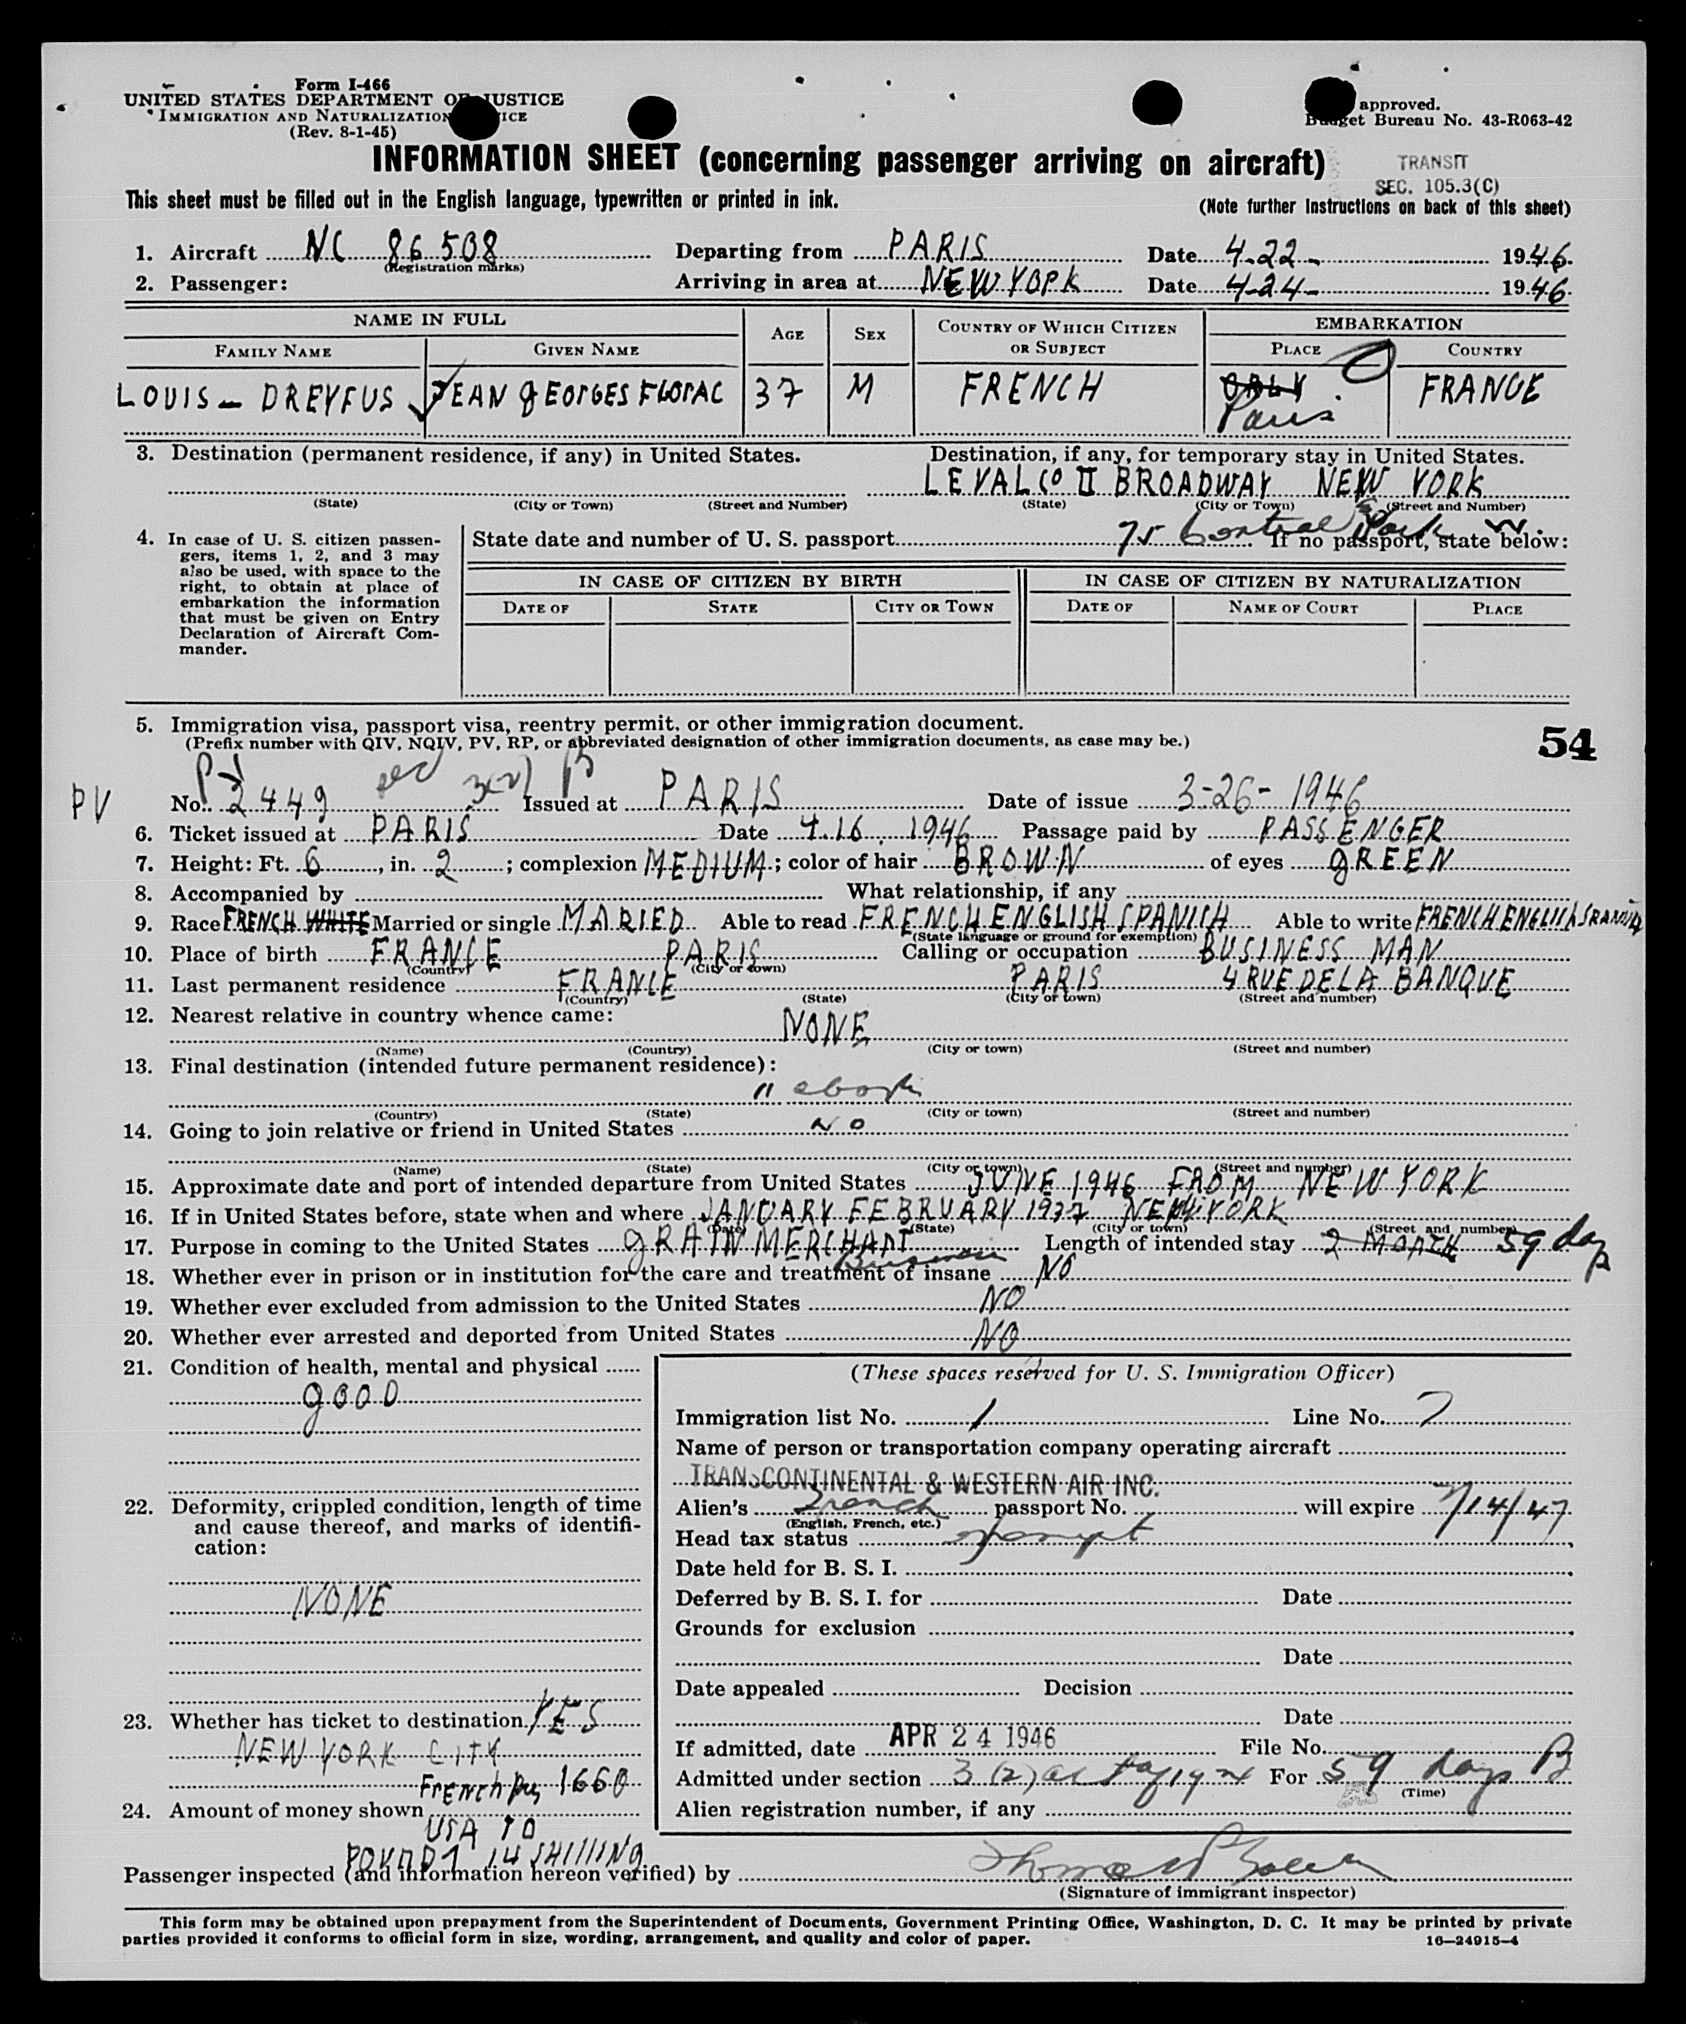 Form I-466
UNITED STATES DEPARTMENT OF JUSTICE
IMMIGRATION AND NATURALIZATION SERVICE
(Rev. 8-1-45)
approved.
Budget Bureau No. 43-R063-42
INFORMATION SHEET (concerning passenger arriving on aircraft)
TRANSIT
SEC. 105.3(C)
This sheet must be filled out in the English language, typewritten or printed in ink.
(Note further instructions on back of this sheet)
1. Aircraft NC 86508 Departing from PARIS Date 4-22- 1946.
(Registration marks)
2. Passenger: Arriving in area at NEW YORK Date 4-24- 1946.
NAME IN FULL AGE SEX COUNTRY OF WHICH CITIZEN OR SUBJECT EMBARKATION
FAMILY NAME GIVEN NAME PLACE COUNTRY
LOUIS-DREYFUS JEAN GEORGES FLORAC 37 M FRENCH ORLY FRANCE
Paris
3. Destination (permanent residence, if any) in United States. Destination, if any, for temporary stay in United States.
LEVAL CO II BROADWAY NEW YORK
(State) (City or Town) (Street and Number) (State) (City or Town) (Street and Number)
75 Central Park W.
4. In case of U. S. citizen passengers, items 1, 2, and 3 may also be used, with space to the right, to obtain at place of embarkation the information that must be given on Entry Declaration of Aircraft Commander.
State date and number of U. S. passport If no passport, state below:
IN CASE OF CITIZEN BY BIRTH IN CASE OF CITIZEN BY NATURALIZATION
DATE OF STATE CITY OR TOWN DATE OF NAME OF COURT PLACE
5. Immigration visa, passport visa, reentry permit, or other immigration document.
(Prefix number with QIV, NQIV, PV, RP, or abbreviated designation of other immigration documents, as case may be.)
54
PV No. 2449 sec 3(2) Issued at PARIS Date of issue 3-26-1946
6. Ticket issued at PARIS Date 4.16. 1946 Passage paid by PASSENGER
7. Height: Ft. 6, in. 2; complexion MEDIUM; color of hair BROWN of eyes GREEN
8. Accompanied by What relationship, if any
9. Race FRENCH WHITE Married or single MARIED Able to read FRENCH ENGLISH SPANISH Able to write FRENCH ENGLISH SPANISH
(State language or ground for exemption)
10. Place of birth FRANCE PARIS Calling or occupation BUSINESS MAN
(Country) (City or town)
11. Last permanent residence FRANCE PARIS 4 RUE DE LA BANQUE
(Country) (State) (City or town) (Street and number)
12. Nearest relative in country whence came: NONE
(Name) (Country) (City or town) (Street and number)
13. Final destination (intended future permanent residence):
" above
(Country) (State) (City or town) (Street and number)
14. Going to join relative or friend in United States NO
(Name) (State) (City or town) (Street and number)
15. Approximate date and port of intended departure from United States JUNE 1946 FROM NEW YORK
16. If in United States before, state when and where JANUARY FEBRUARY 1937 NEW YORK
(Date) (State) (City or town) (Street and number)
17. Purpose in coming to the United States GRAIN MERCHANT Business Length of intended stay 2 MONTH 59 days
18. Whether ever in prison or in institution for the care and treatment of insane NO
19. Whether ever excluded from admission to the United States NO
20. Whether ever arrested and deported from United States NO
21. Condition of health, mental and physical
GOOD
22. Deformity, crippled condition, length of time and cause thereof, and marks of identification:
NONE
23. Whether has ticket to destination YES
NEW YORK CITY
French 1660
24. Amount of money shown
USA 70
POUND 7 14 SHILLING
(These spaces reserved for U. S. Immigration Officer)
Immigration list No. 1 Line No. 7
Name of person or transportation company operating aircraft
TRANSCONTINENTAL & WESTERN AIR INC.
Alien's French passport No. will expire 7/14/47
(English, French, etc.)
Head tax status exempt
Date held for B. S. I.
Deferred by B. S. I. for Date
Grounds for exclusion
Date
Date appealed Decision
Date
If admitted, date APR 24 1946 File No.
Admitted under section 3(2) act of 1924 For 59 days
(Time)
Alien registration number, if any
Passenger inspected (and information hereon verified) by
(Signature of immigrant inspector)
This form may be obtained upon prepayment from the Superintendent of Documents, Government Printing Office, Washington, D. C. It may be printed by private
parties provided it conforms to official form in size, wording, arrangement, and quality and color of paper.
16—24915-4